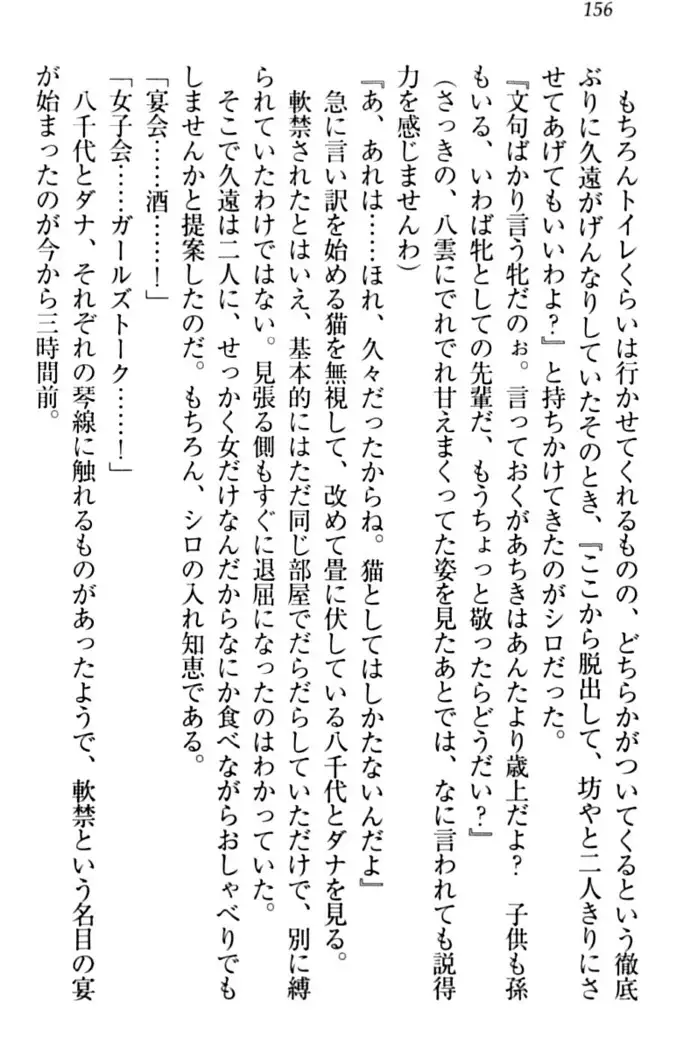 156
もちろんトイレくらいは行かせてくれるものの、どちらかがついてくるという徹底
ぶりに久遠がげんなりしていたそのとき、『ここから脱出して、坊やと二人きりにさ
せてあげてもいいわよ？』と持ちかけてきたのがシロだった。
『文句ばかり言う牝だのぉ。言っておくがあちきはあんたより歳上だよ？　子供も孫
もいる、いわば牝としての先輩だ、もうちょっと敬ったらどうだい？』
（さっきの、八雲にでれでれ甘えまくってた姿を見たあとでは、なに言われても説得
力を感じませんわ）
『あ、あれは……ほれ、久々だったからね。猫としてはしかたないんだよ』
急に言い訳を始める猫を無視して、改めて畳に伏している八千代とダナを見る。
軟禁されたとはいえ、基本的にはただ同じ部屋でだらだらしていただけで、別に縛
られていたわけではない。見張る側もすぐに退屈になったのはわかっていた。
そこで久遠は二人に、せっかく女だけなんだからなにか食べながらおしゃべりでも
しませんかと提案したのだ。もちろん、シロの入れ知恵である。
「宴会……酒……！」
「女子会……ガールズトーク……！」
八千代とダナ、それぞれの琴線に触れるものがあったようで、軟禁という名目の宴
が始まったのが今から三時間前。